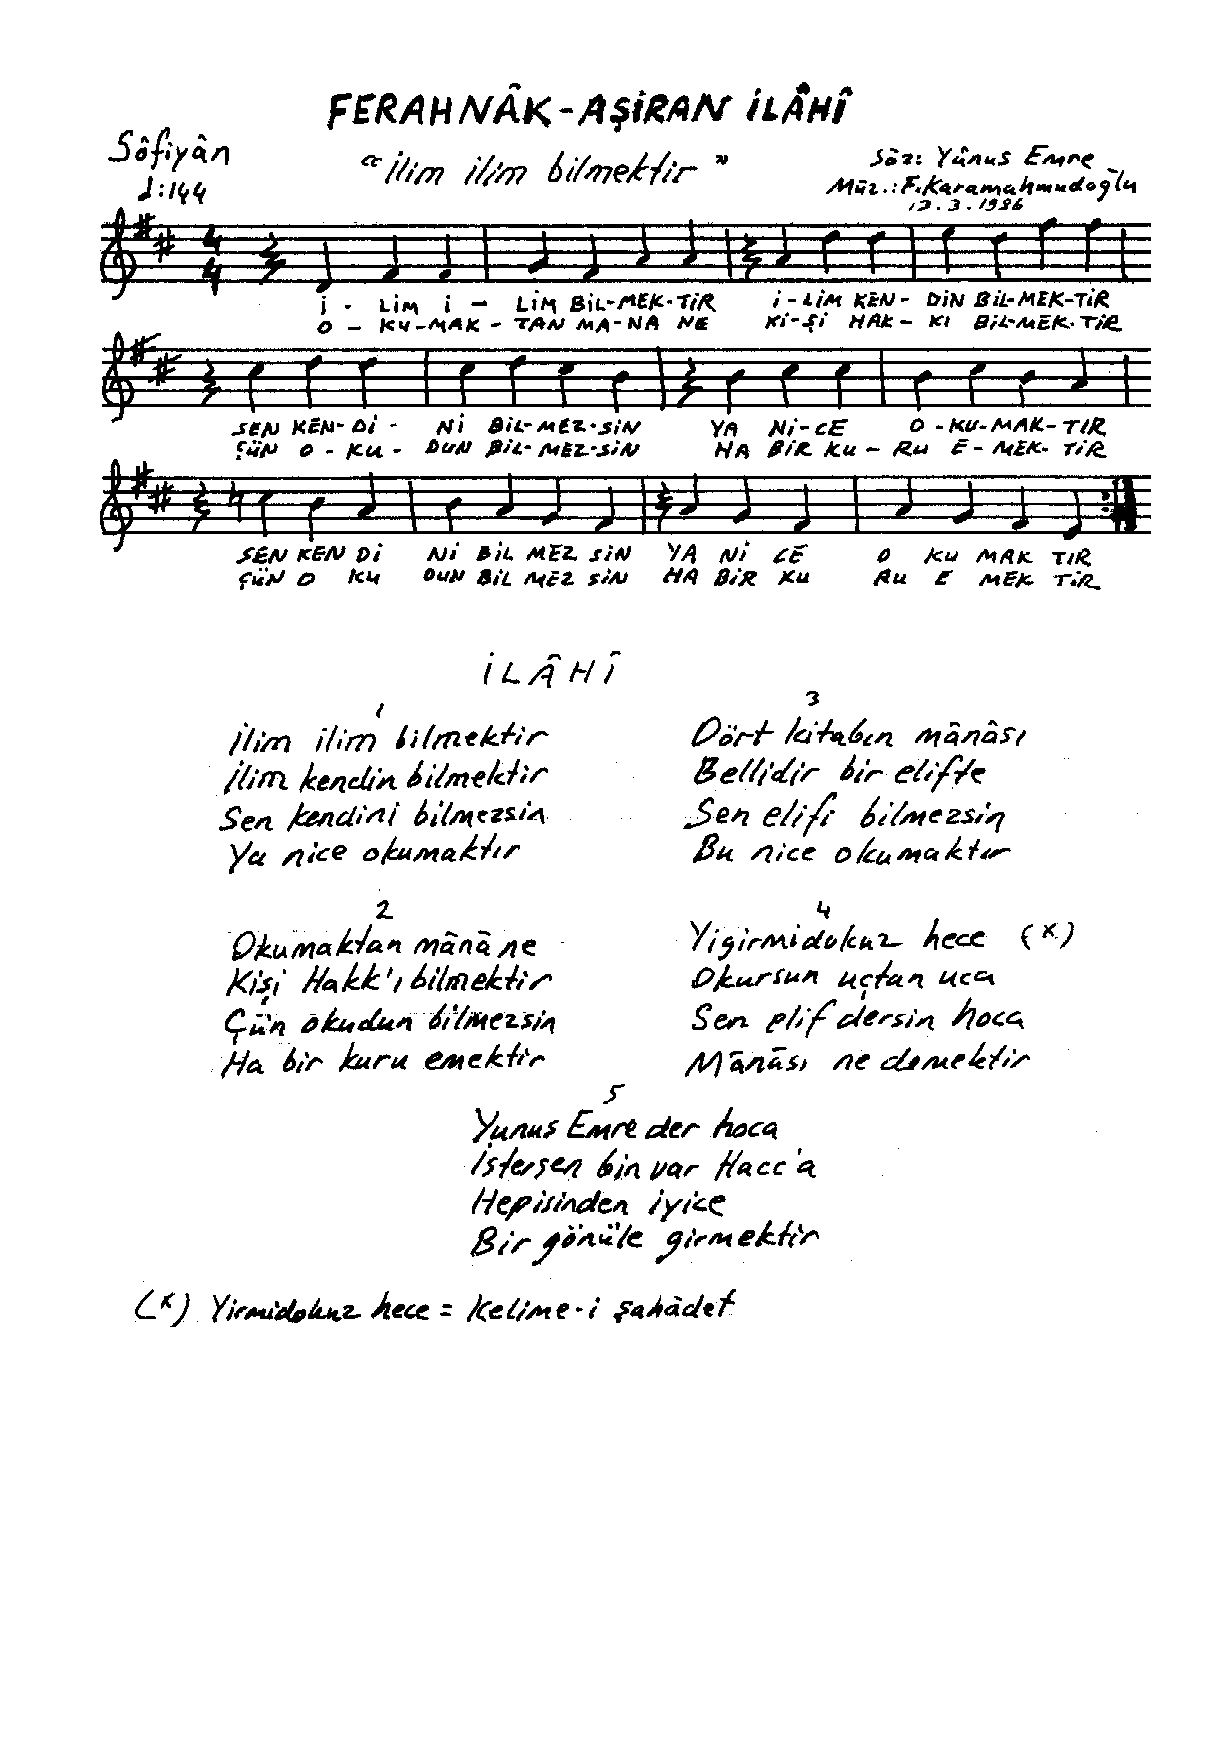 FERAHNÂK-AŞİRAN İLÂHÎ
Sôfiyân
"İlim ilim bilmektir"
Söz: Yûnus Emre
♩:144
Müz.: F.Karamahmudoğlu
4
4
İ - LİM İ - LİM BİL-MEK-TİR İ-LİM KEN- DİN BİL-MEK-TİR
O - KU-MAK - TAN MA-NA NE Kİ-Şİ HAK- KI BİL-MEK-TİR
SEN KEN-Dİ - Nİ BİL-MEZ-SİN YA Nİ-CE O-KU-MAK-TIR
ÇÜN O-KU- DUN BİL-MEZ-SİN HA BİR KU-RU E-MEK-TİR
SEN KEN Dİ Nİ BİL MEZ SİN YA Nİ CE O KU MAK TIR
ÇÜN O KU DUN BİL MEZ SİN HA BİR KU RU E MEK TİR
İLÂHÎ
1
İlim ilim bilmektir
İlim kendin bilmektir
Sen kendini bilmezsin
Ya nice okumaktır
2
Okumaktan mânâ ne
Kişi Hakk'ı bilmektir
Çün okudun bilmezsin
Ha bir kuru emektir
3
Dört kitabın mânâsı
Bellidir bir elifte
Sen elifi bilmezsin
Bu nice okumaktır
4
Yigirmidokuz hece (x)
Okursun uçtan uca
Sen elif dersin hoca
Mânâsı ne demektir
5
Yunus Emre der hoca
İstersen bin var Hacc'a
Hepisinden iyice
Bir gönüle girmektir
(x) Yirmidokuz hece = Kelime-i şahâdet